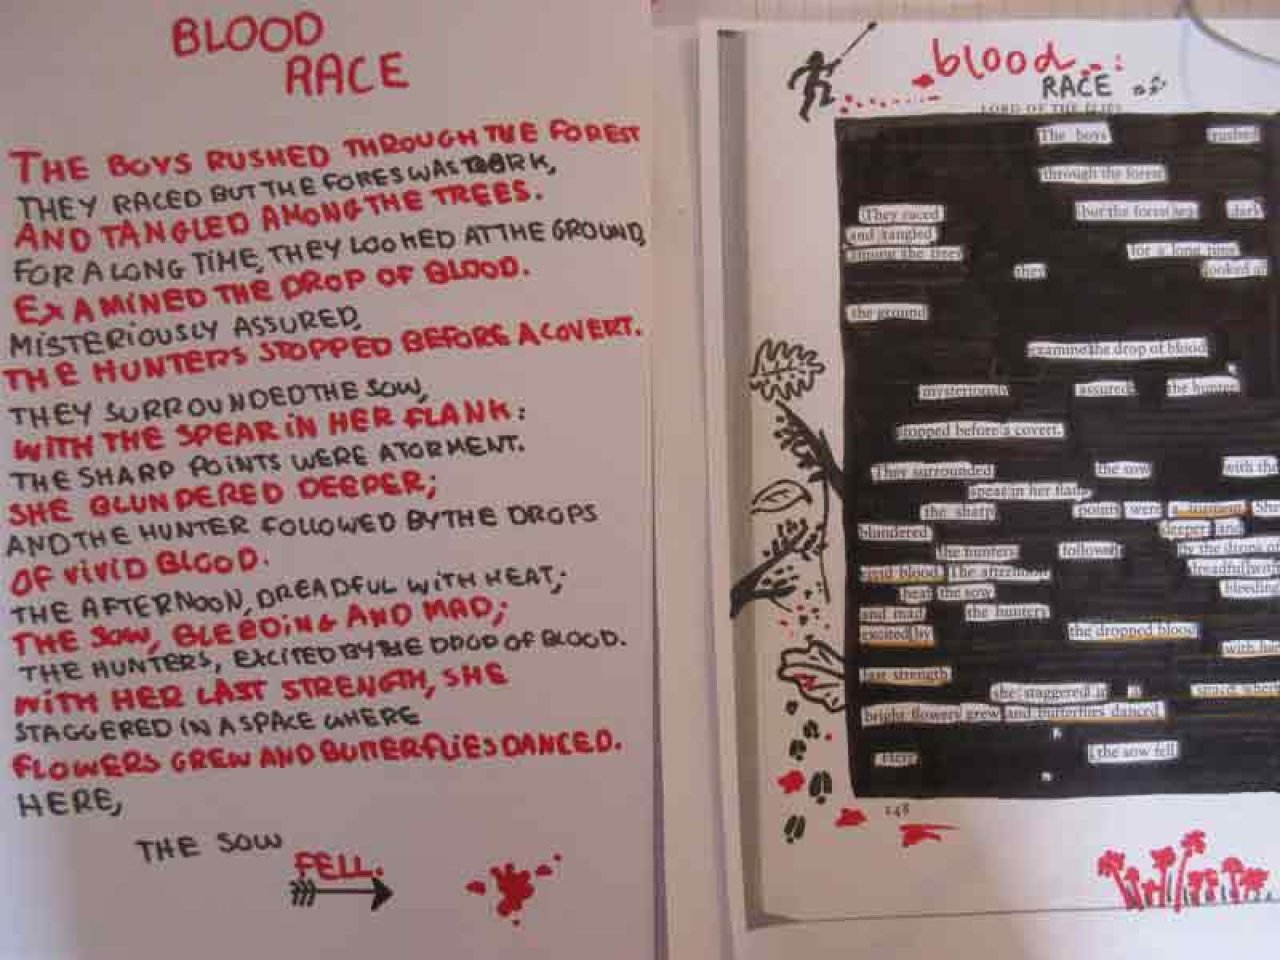 BLOOD
RACE
THE BOYS RUSHED THROUGH THE FOREST
THEY RACED BUT THE FORES WAS DARK,
AND TANGLED AMONG THE TREES.
FOR A LONG TIME, THEY LOOKED AT THE GROUND,
EXAMINED THE DROP OF BLOOD.
MISTERIOUSLY ASSURED,
THE HUNTERS STOPPED BEFORE A COVERT.
THEY SURROUNDED THE SOW,
WITH THE SPEAR IN HER FLANK:
THE SHARP POINTS WERE A TORMENT.
SHE BLUNDERED DEEPER;
AND THE HUNTER FOLLOWED BY THE DROPS
OF VIVID BLOOD.
THE AFTERNOON, DREADFUL WITH HEAT;
THE SOW, BLEEDING AND MAD;
THE HUNTERS, EXCITED BY THE DROP OF BLOOD.
WITH HER LAST STRENGTH, SHE
STAGGERED IN A SPACE WHERE
FLOWERS GREW AND BUTTERFLIES DANCED.
HERE,
THE SOW
FELL.
blood
RACE
LORD OF THE FLIES
The boys rushed
through the forest
They raced but the forest was dark
and tangled for a long time
among the trees they looked at
the ground
examine the drop of blood
mysteriously assured the hunter
stopped before a covert.
They surrounded the sow with the
spear in her flank
the sharp points were a torment She
blundered deeper and
the hunters followed by the drops of
vivid blood The afternoon dreadful with
heat the sow bleeding
and mad the hunters
excited by the dropped blood
with her
last strength
she staggered in space where
bright flowers grew and butterflies danced
Here the sow fell
148